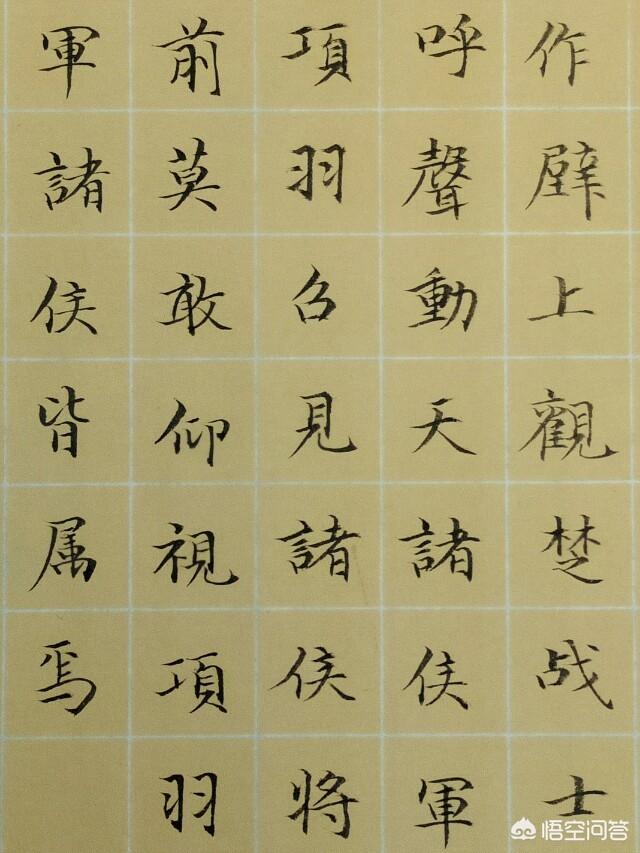 作壁上觀楚战士
呼聲動天諸侯軍
項羽召見諸侯將
前莫敢仰視項羽
軍諸侯皆属焉
悟空问答